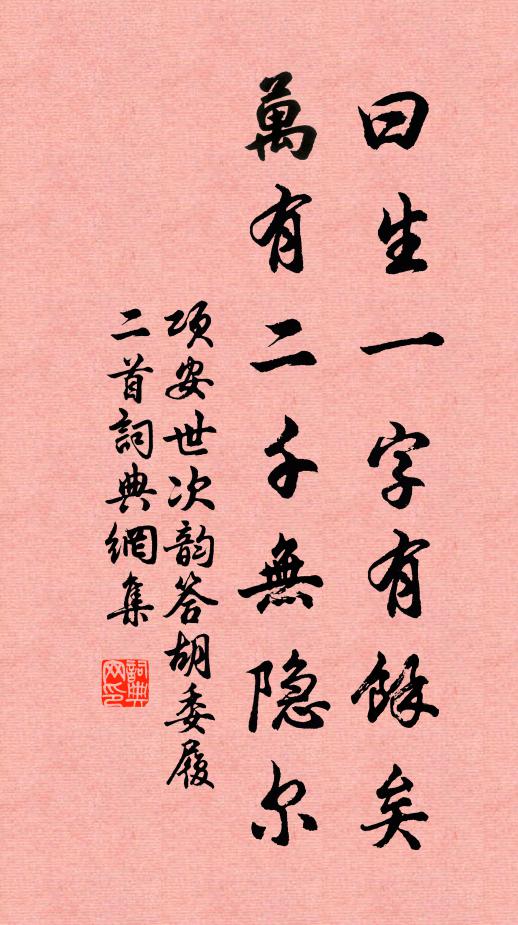 曰生一字有餘矣
萬有二千無隐尔
项安世次韵答胡委履
二首詞典網集
詞典網印